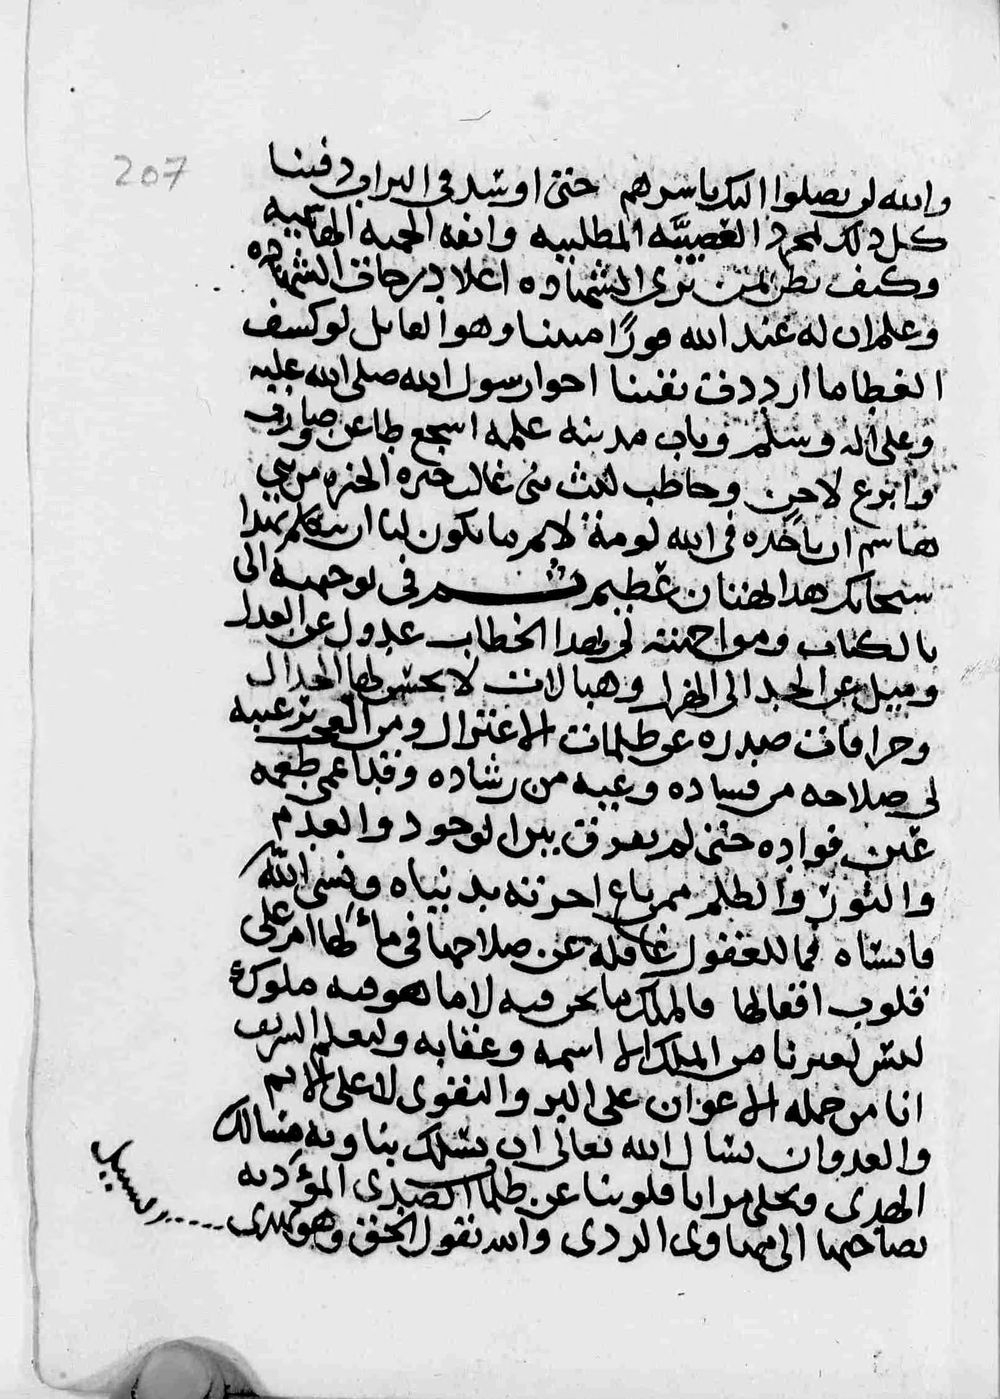 207
والله لن يصلوا اليك باسرهم حتى اوسد في التراب دفينا
كل ذلك لمجرد العصبيّه المطلبيه وانفه الحميه الهاشميه
وكيف يظن لمن يرى الشهاده اعلا درجات الشهاده
وعلم ان له عند الله فوزًا مبينا وهو القايل لو كشف
الغطا ما ازددت يقينا اخو رسول الله صلى الله عليه
وعلى اله وسلم وباب مدينه علمه اشجع طاعن وضارب
وابرع لاحن وخاطب ليث بني غالب خيره الخيره من بني
هاشم ان ياخذه في الله لومة لايم ما يكون لنا ان نتكلم بهذا
سبحانك هذا بهتان عظيم ثم في توجهه الى
بالكتاب ومواجهته لي بهذا الخطاب عدول عن العدل
وميل عن الجد الى الهزل وخيالات لا يحسن لها الجدال
وخرافات صدره عن ظلمات الاعتزال ومن العجب ترغيبه
لي صلاحه من فساده وغيه من رشاده وقد اعمى طمعه
عين فواده حتى لم يفرق بين الوجود والعدم
والنور والظلم ممن باع اخرته بدنياه ونسى الله
فانساه فما للعقول غافله عن صلاحها في مألها ام على
قلوب اقفالها فالملك ما نحن فيه لا ما هو فيه ملوك
ليس لغيرنا من الملك الا اسمه وعقابه وليعلم الشريف
انا من جمله الاعوان على البر والتقوى لا على الاثم
والعدوان نسال الله تعالى ان يسلك بنا وبه مسالك
الهدى ويجلي مرايا قلوبنا عن ظلمات الصدى المؤديه
بصاحبها الى مهاوى الردى والله يقول الحق وهو يهدى
السبيل